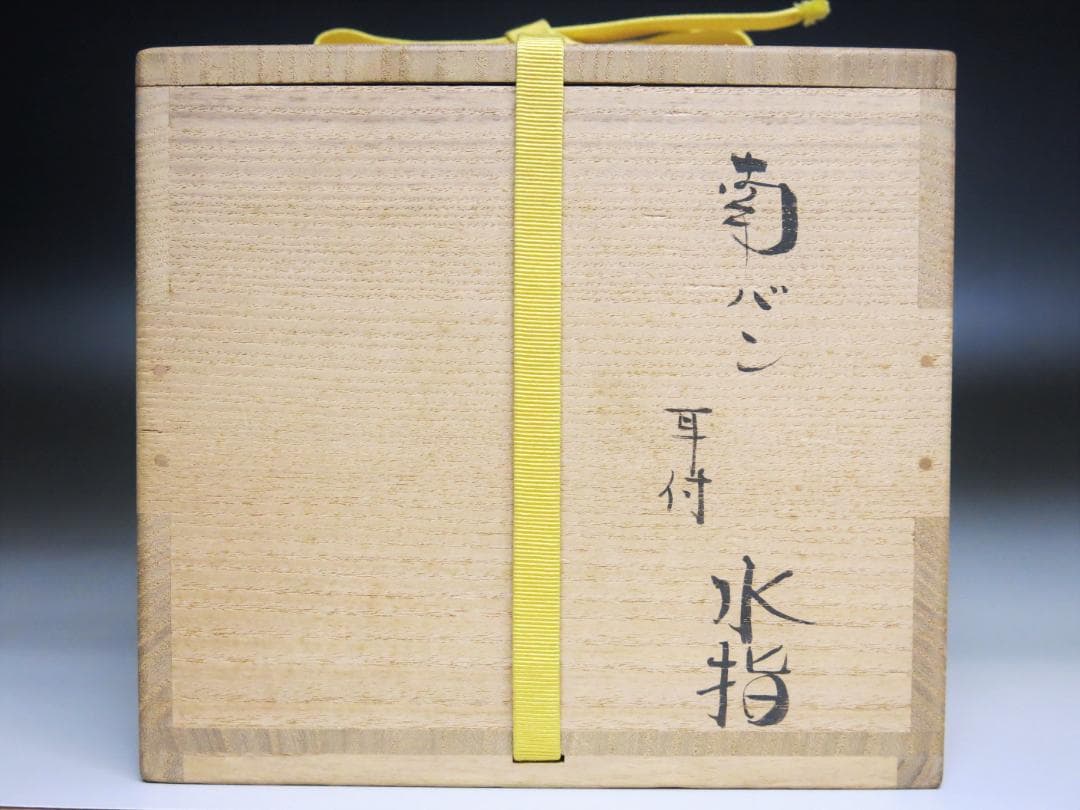 南バン
耳付
水指